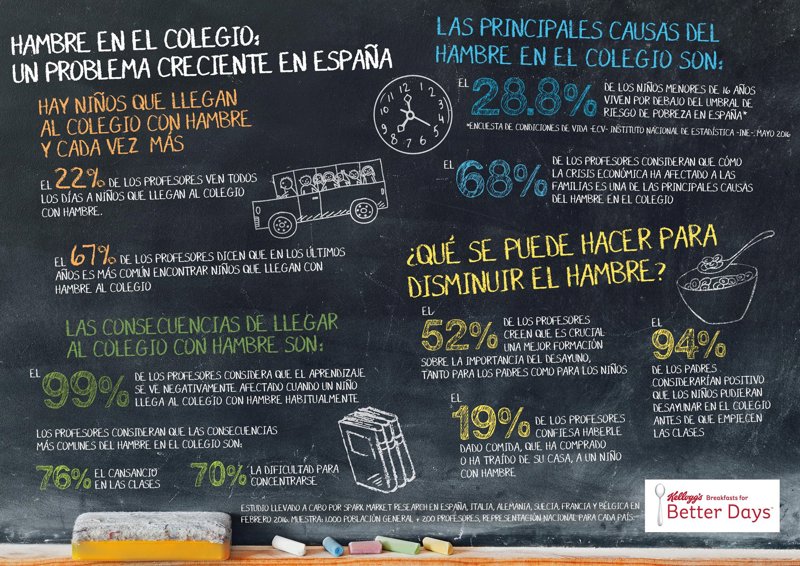 HAMBRE EN EL COLEGIO:
UN PROBLEMA CRECIENTE EN ESPAÑA
HAY NIÑOS QUE LLEGAN
AL COLEGIO CON HAMBRE
Y CADA VEZ MÁS
EL 22% DE LOS PROFESORES VEN TODOS
LOS DÍAS A NIÑOS QUE LLEGAN AL COLEGIO
CON HAMBRE.
EL 67% DE LOS PROFESORES DICEN QUE EN LOS ÚLTIMOS
AÑOS ES MÁS COMÚN ENCONTRAR NIÑOS QUE LLEGAN CON
HAMBRE AL COLEGIO
LAS CONSECUENCIAS DE LLEGAR
AL COLEGIO CON HAMBRE SON:
EL 99% DE LOS PROFESORES CONSIDERA QUE EL APRENDIZAJE
SE VE NEGATIVAMENTE AFECTADO CUANDO UN NIÑO
LLEGA AL COLEGIO CON HAMBRE HABITUALMENTE
LOS PROFESORES CONSIDERAN QUE LAS CONSECUENCIAS
MÁS COMUNES DEL HAMBRE EN EL COLEGIO SON:
76% EL CANSANCIO
EN LAS CLASES
70% LA DIFICULTAD PARA
CONCENTRARSE
LAS PRINCIPALES CAUSAS DEL
HAMBRE EN EL COLEGIO SON:
EL 28.8% DE LOS NIÑOS MENORES DE 16 AÑOS
VIVEN POR DEBAJO DEL UMBRAL DE
RIESGO DE POBREZA EN ESPAÑA*
*ENCUESTA DE CONDICIONES DE VIDA -ECV- INSTITUTO NACIONAL DE ESTADÍSTICA -INE-: MAYO 2016
EL 68% DE LOS PROFESORES CONSIDERAN QUE CÓMO
LA CRISIS ECONÓMICA HA AFECTADO A LAS
FAMILIAS ES UNA DE LAS PRINCIPALES CAUSAS
DEL HAMBRE EN EL COLEGIO
¿QUÉ SE PUEDE HACER PARA
DISMINUIR EL HAMBRE?
EL 52% DE LOS PROFESORES
CREEN QUE ES CRUCIAL
UNA MEJOR FORMACIÓN
SOBRE LA IMPORTANCIA DEL DESAYUNO,
TANTO PARA LOS PADRES COMO PARA LOS NIÑOS
EL 19% DE LOS PROFESORES
CONFIESA HABERLE
DADO COMIDA, QUE HA COMPRADO
O HA TRAÍDO DE SU CASA, A UN NIÑO
CON HAMBRE
EL 94%
DE LOS PADRES
CONSIDERARÍAN POSITIVO
QUE LOS NIÑOS PUDIERAN
DESAYUNAR EN EL COLEGIO
ANTES DE QUE EMPIECEN
LAS CLASES
ESTUDIO LLEVADO A CABO POR SPARK MARKET RESEARCH EN ESPAÑA, ITALIA, ALEMANIA, SUECIA, FRANCIA Y BÉLGICA EN
FEBRERO 2016. MUESTRA: 1.000 POBLACIÓN GENERAL + 200 PROFESORES, REPRESENTACIÓN NACIONAL PARA CADA PAÍS-
Kellogg's Breakfasts for
Better Days